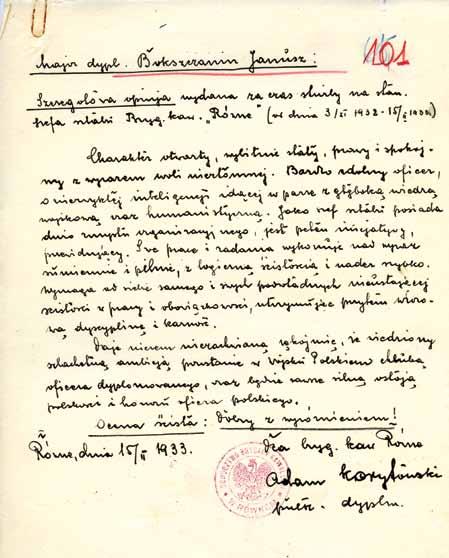 101
Major dypl. Bokszczanin Janusz:
Szczegółowa opinja wydana za czas służby na stan.
szefa sztabu Bryg. kaw. „Równe" (od dnia 3/XI 1932 - 15/ 1933)
Charakter otwarty, wybitnie stały, prawy i spokoj-
ny z wyrazem woli niezłomnej. Bardzo zdolny oficer,
o niezwykłej inteligencji idącej w parze z głęboką wiedzą
wojskową oraz humanistyczną. Jako szef sztabu posiada
dużo zmysłu organizacyjnego, jest pełen inicjatywy,
przewidujący. Swe prace i zadania wykonuje nad wyraz
sumiennie i pilnie, z logiczną ścisłością i nader szybko.
Wymaga od siebie samego i swych podwładnych nieustającej
ścisłości w pracy i obowiązkowości, utrzymując przytem wzoro-
wą dyscyplinę i karność.
Daje niczem niezachwianą rękojmię, że wiedziony
szlachetną ambicją pozostanie w Wojsku Polskiem chlubą
oficera dyplomowanego, oraz będzie zawsze silną ostoją
polskości i honoru oficera polskiego.
Ocena ścisła: dobry z wyróżnieniem!
Równe, dnia 15/ 1933.
Dca bryg. kaw Równe
Adam Korytowski
pułk. dypl.
W RÓWNEM